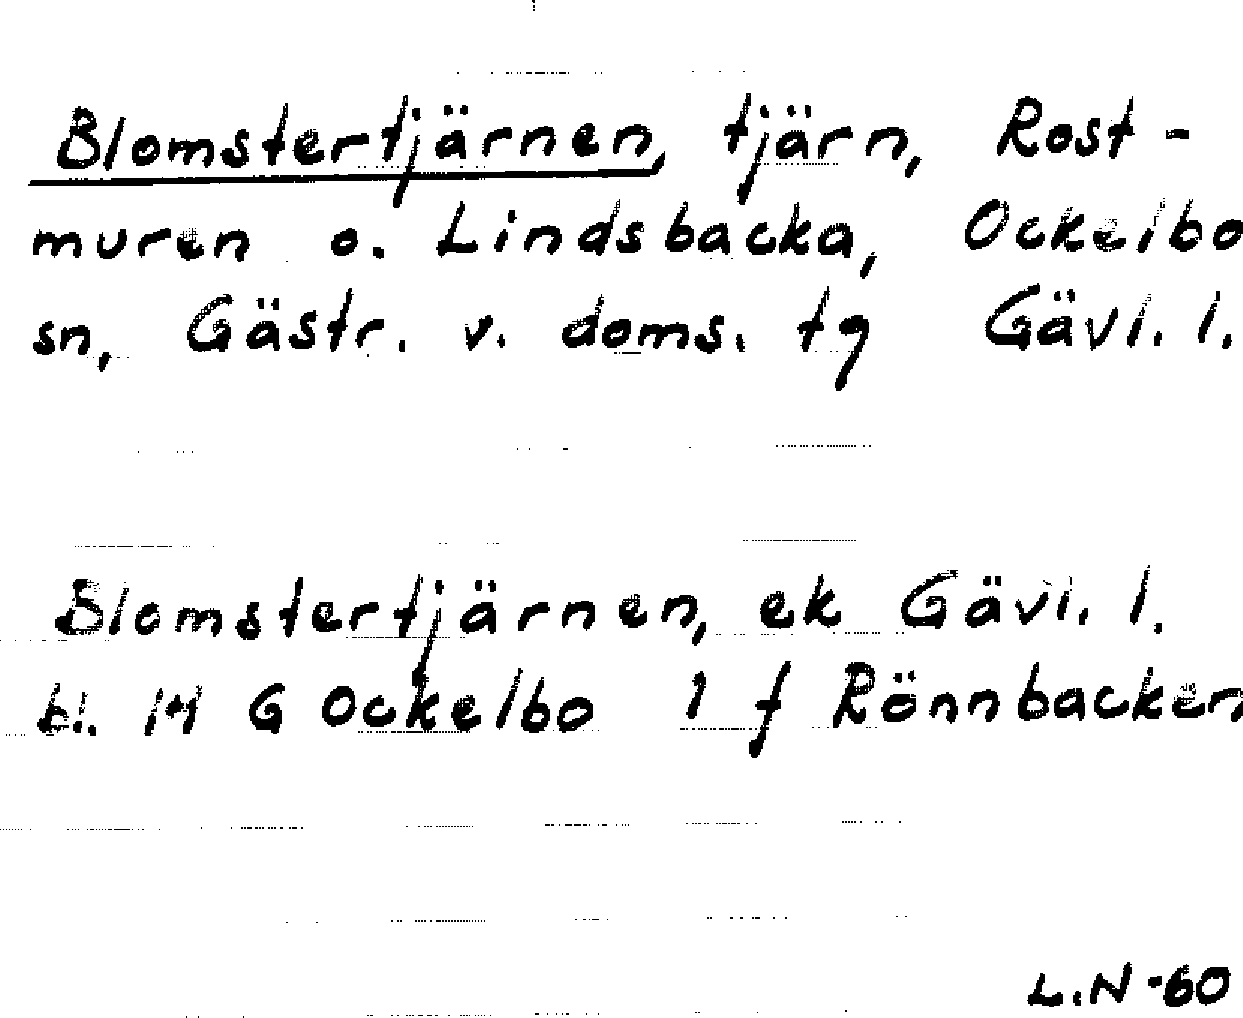 Blomstertjärnen, tjärn, Rost-
muren o. Lindsbacka, Ockelbo
sn, Gästr. v. doms. tg Gävl. l.
Blomstertjärnen, ek Gävl. l.
bl. 14 G Ockelbo 1 f Rönnbacken
L.N -60